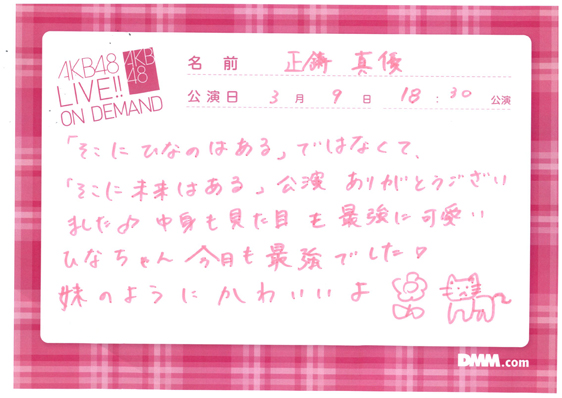 AKB48
LIVE!!
ON DEMAND
AKB
48
名 前 正鋳 真優
公演日 3 月 9 日 18 : 30 公演
「そこにひなのはある」ではなくて、
「そこに未来はある」公演 ありがとうござい
ました♪ 中身も見た目も最強に可愛い
ひなちゃん 今日も最強でした♡
妹のようにかわいいよ
DMM.com